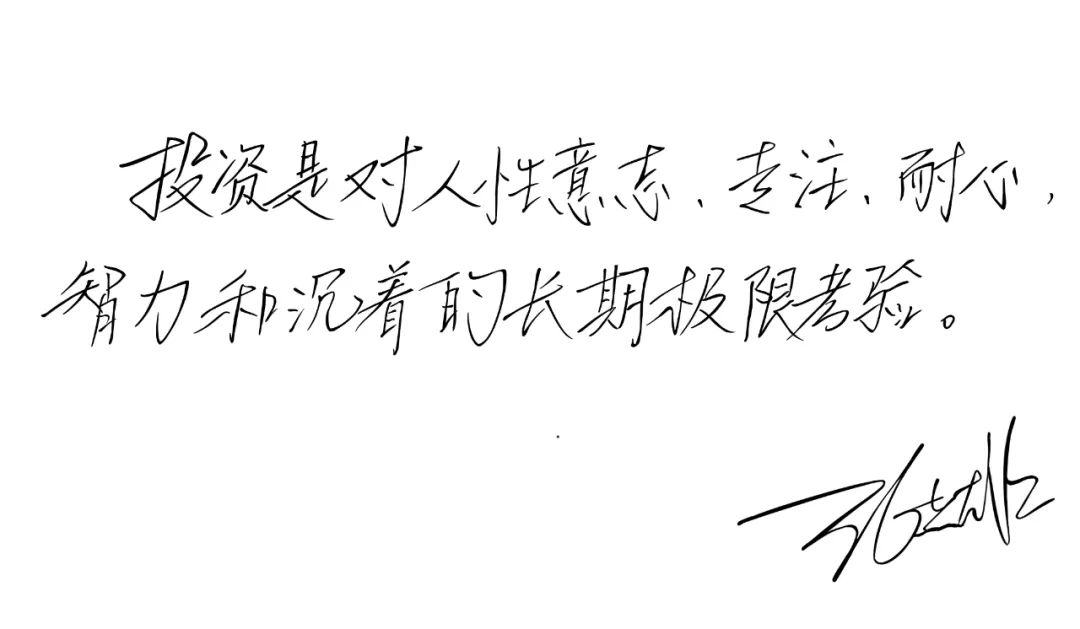 投资是对人性意志、专注、耐心，
智力和沉着的长期极限考验。